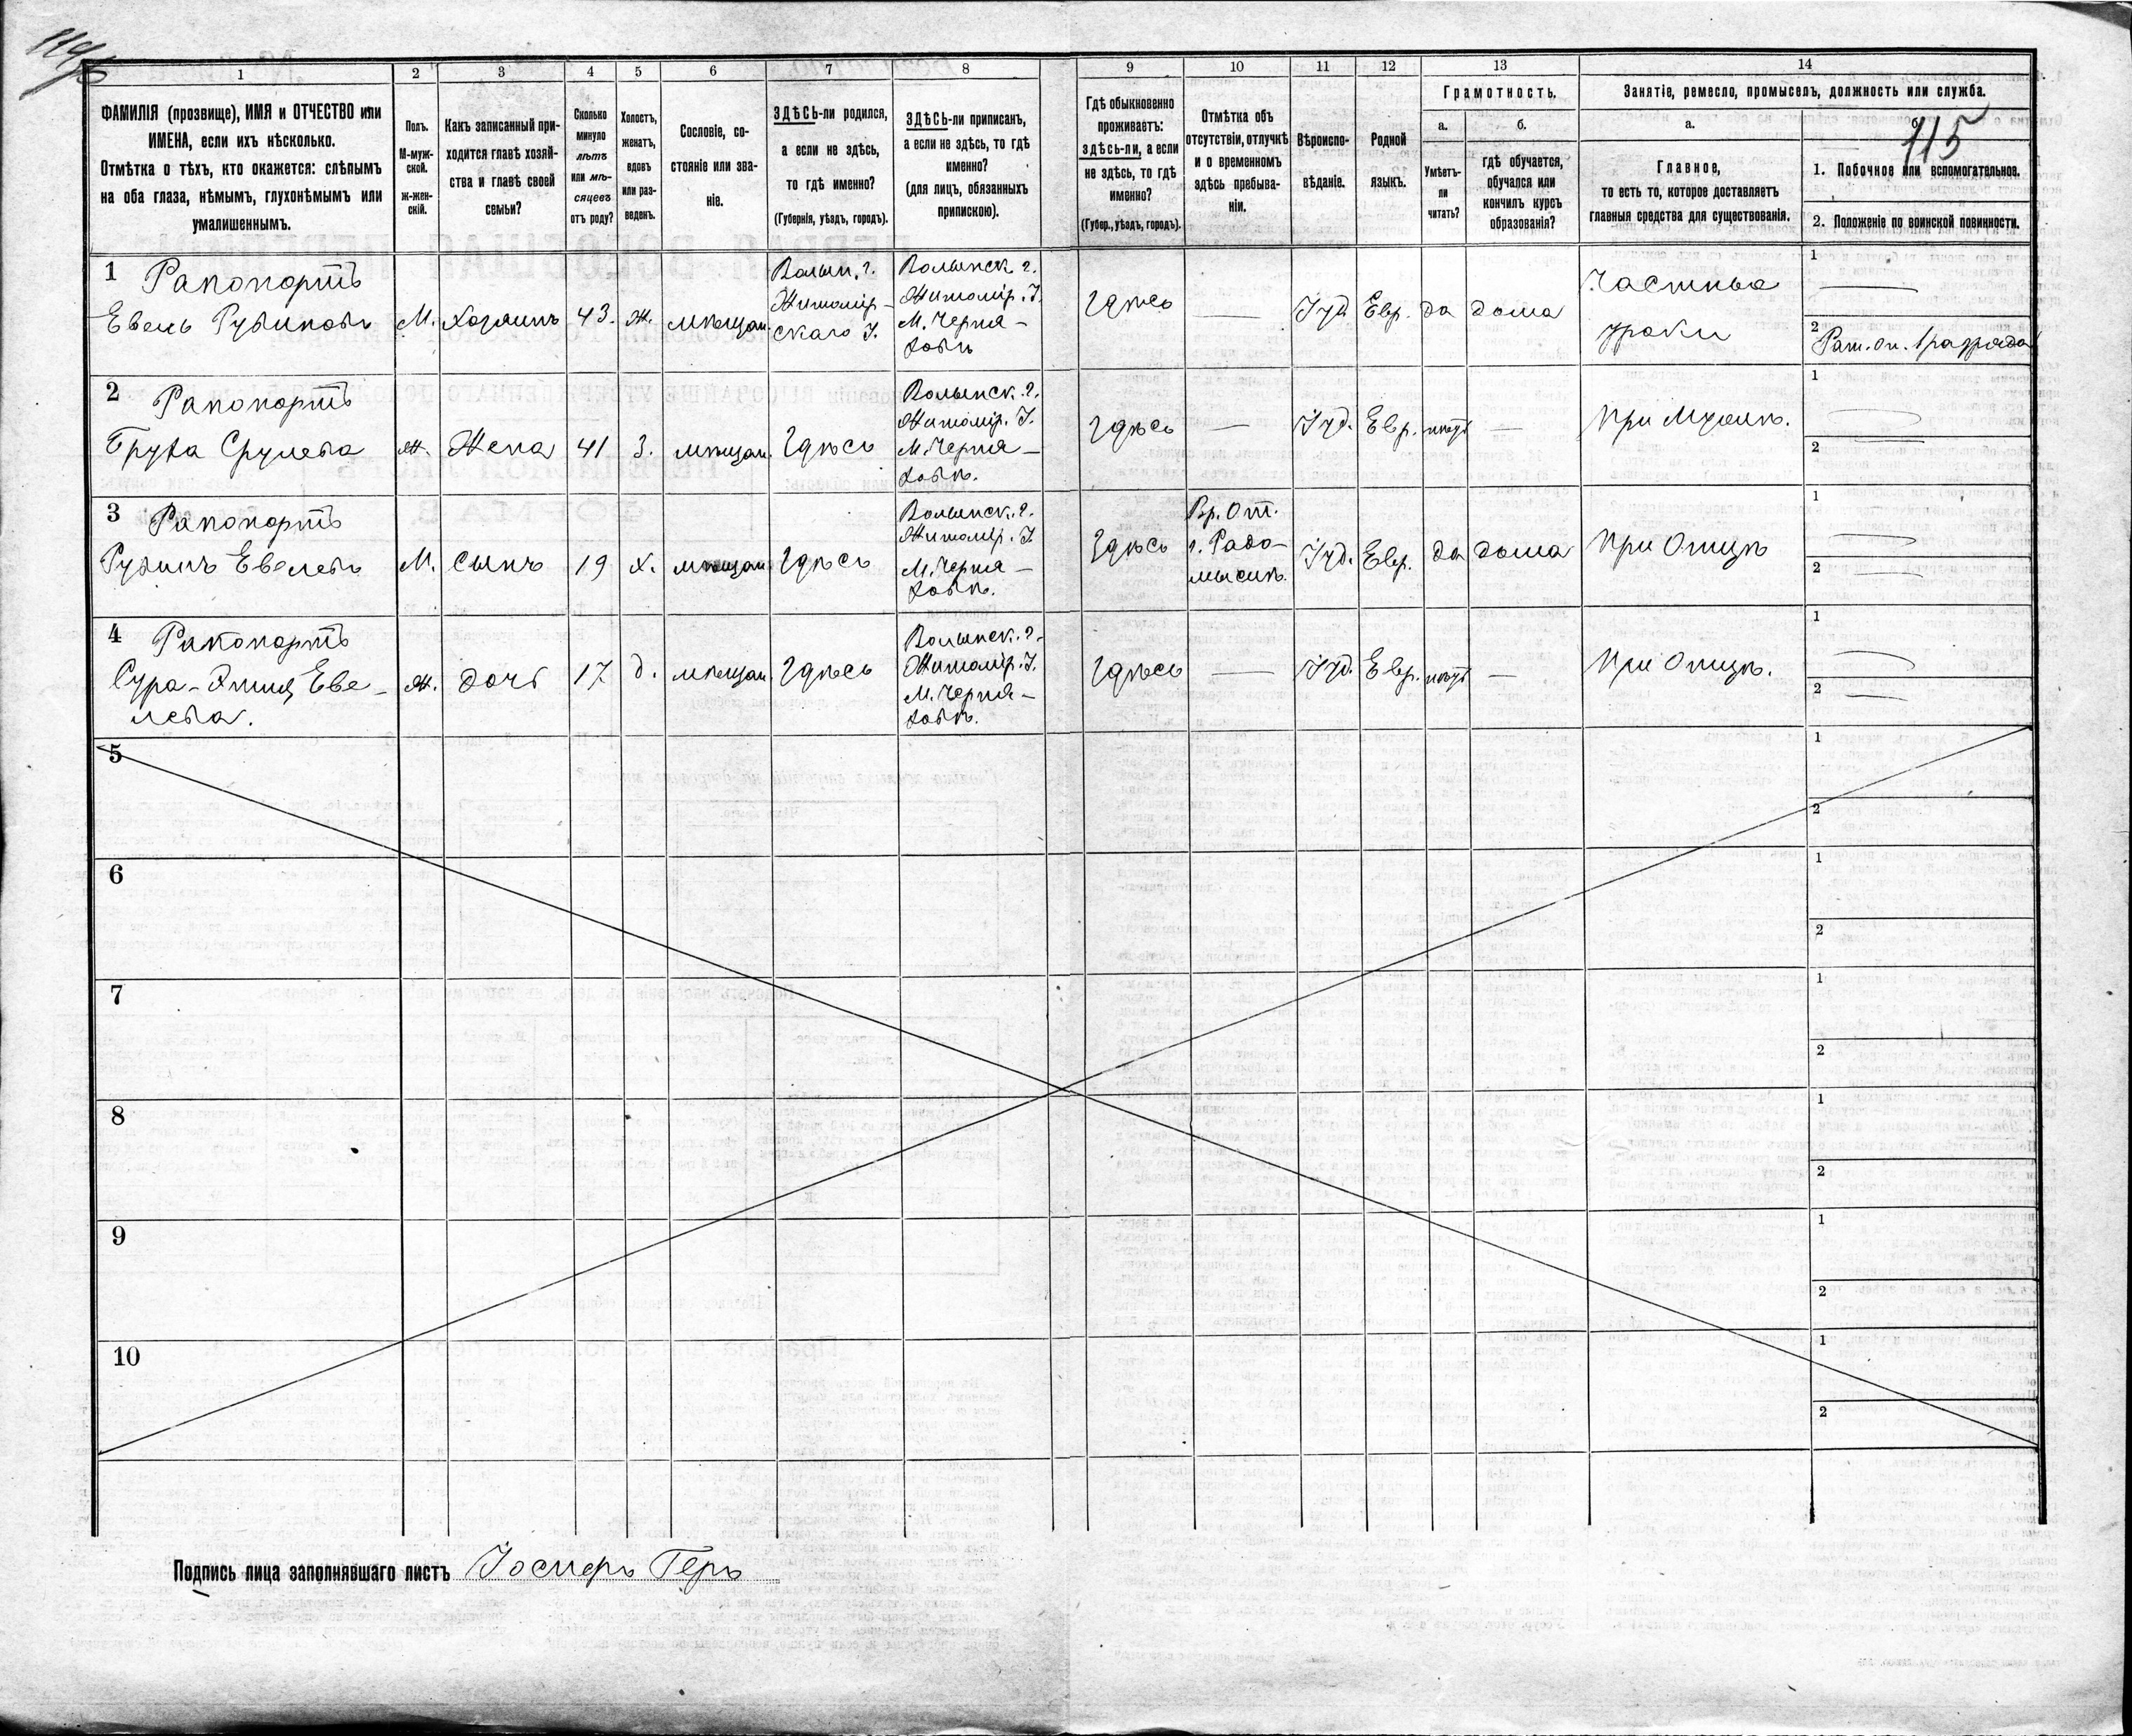 115
1
2
3
4
5
6
7
8
9
10
11
12
13
14
ФАМИЛІЯ (прозвище), ИМЯ и ОТЧЕСТВО или
ИМЕНА, если ихъ нѣсколько.
Отмѣтка о тѣхъ, кто окажется: слѣпымъ
на оба глаза, нѣмымъ, глухонѣмымъ или
умалишеннымъ.
Полъ.
М-муж-
ской.
ж-жен-
скій.
Какъ записанный при-
ходится главѣ хозяй-
ства и главѣ своей
семьи?
Сколько
минуло
лѣтъ
или мѣ-
сяцевъ
отъ роду?
Холостъ,
женатъ,
вдовъ
или раз-
веденъ.
Сословіе, со-
стояніе или зва-
ніе.
ЗДѢСЬ-ли родился,
а если не здѣсь,
то гдѣ именно?
(Губернія, уѣздъ, городъ).
ЗДѢСЬ-ли приписанъ,
а если не здѣсь, то гдѣ
именно?
(для лицъ, обязанныхъ
припискою).
Гдѣ обыкновенно
проживаетъ:
здѣсь-ли, а если
не здѣсь, то гдѣ
именно?
(Губер., уѣздъ, городъ).
Отмѣтка объ
отсутствіи, отлучкѣ
и о временномъ
здѣсь пребыва-
ніи.
Вѣроиспо-
вѣданіе.
Родной
языкъ.
Грамотность.
а.
Умѣетъ-
ли
читать?
б.
гдѣ обучается,
обучался или
кончилъ курсъ
образованія?
Занятіе, ремесло, промыселъ, должность или служба.
а.
Главное,
то есть то, которое доставляетъ
главныя средства для существованія.
1. Побочное или вспомогательное.
2. Положеніе по воинской повинности.
1
Рапопортъ
Евель Рувиновъ
М.
Хозяинъ
43.
Ж.
мѣщан.
Волын. г.
Житомір-
скаго У.
Волынск. г.
Житомір. У.
М. Черня-
ховъ
Здѣсь
—
Іуд
Евр.
да
дома
Частные
уроки
1 —
2
Рат. оп. 1 разряда
2
Рапопортъ
Бруха Срулева
Ж.
Жена
41
З.
мѣщан.
Здѣсь
Волынск. г.
Житомір. У.
М. Черня-
ховъ.
Здѣсь
—
Іуд.
Евр.
нѣтъ
—
При Мужѣ.
1 —
2
3
Рапопортъ
Рувинъ Евелевъ
М.
Сынъ
19
Х.
мѣщан
Здѣсь
Волынск. г.
Житомір. У.
М. Черня-
ховъ.
Здѣсь
Вр. От.
г. Радо-
мыслѣ.
Іуд.
Евр.
да
дома
При Отцѣ
1 —
2 —
4
Рапопортъ
Сура-Этя Еве-
лева.
Ж.
дочь
17
д.
мѣщан.
Здѣсь
Волынск. г.
Житомір. У.
М. Черня-
ховъ.
Здѣсь
—
Іуд.
Евр.
нѣтъ
—
При Отцѣ.
1 —
2 —
5
1
2
6
1
2
7
1
2
8
1
2
9
1
2
10
1
2
Подпись лица заполнявшаго листъ